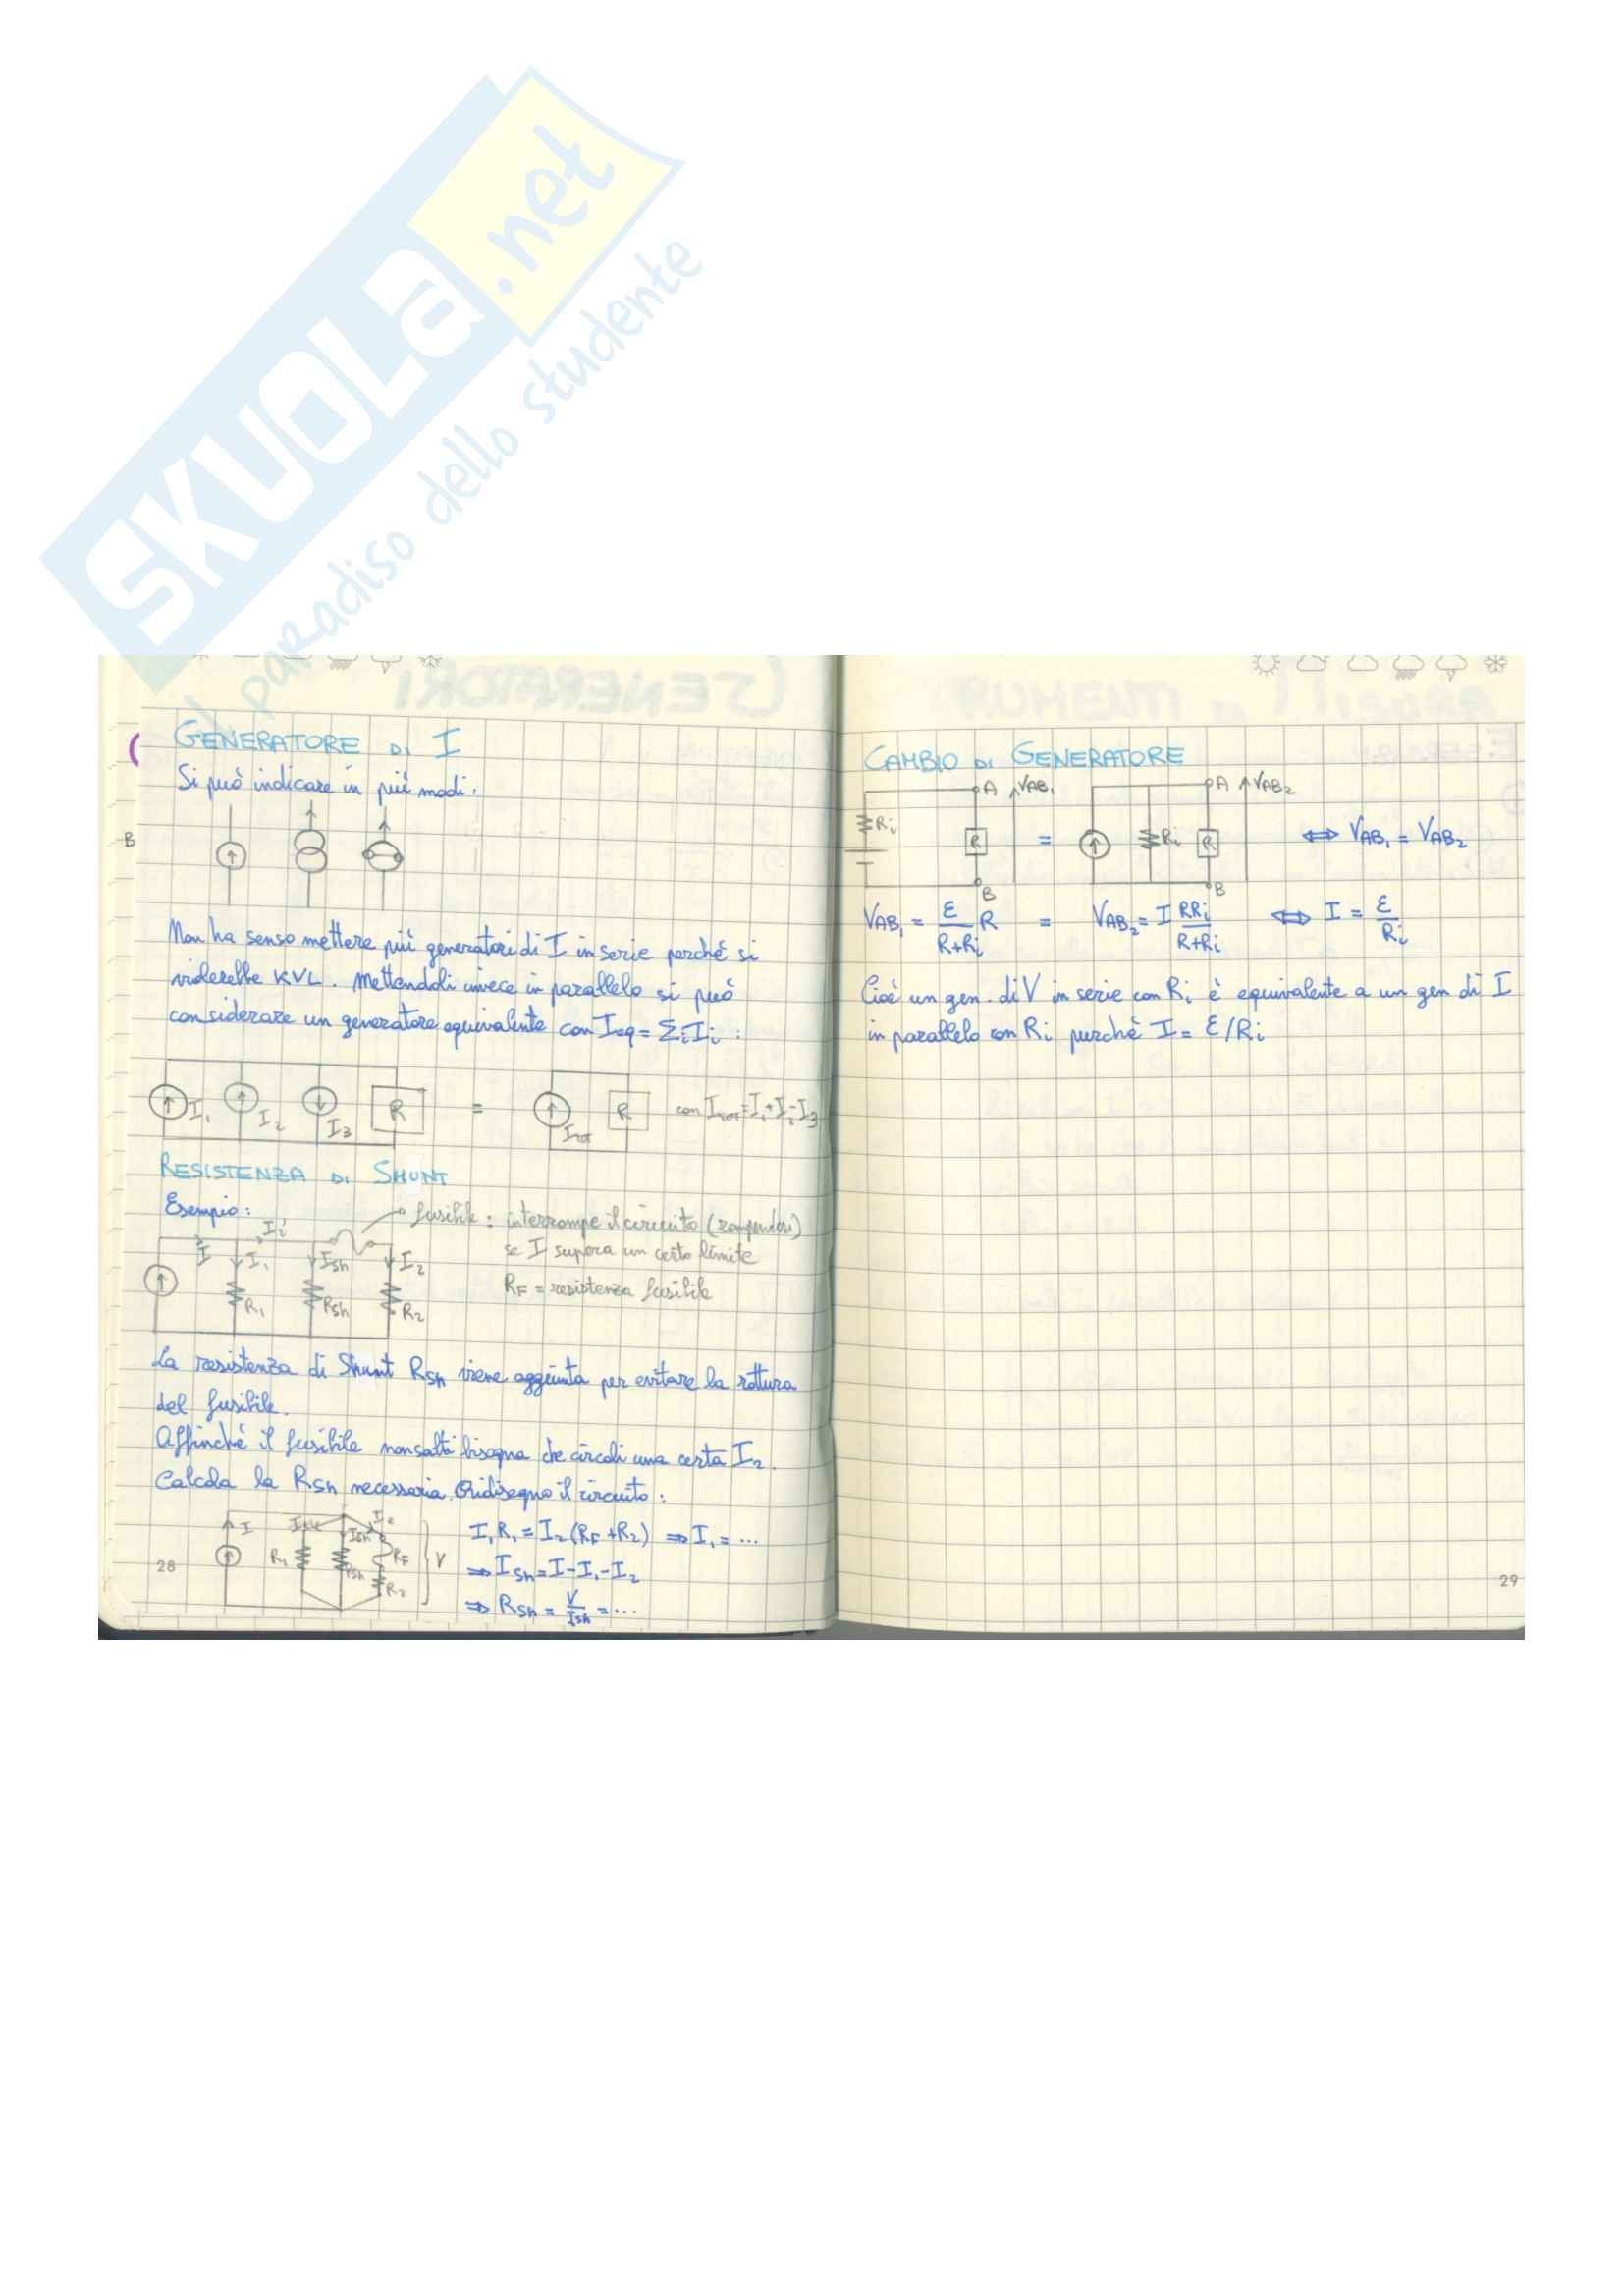 SKUOLA.net
il paradiso dello studente
GENERATORE DI I
Si può indicare in più modi:
B
Non ha senso mettere più generatori di I in serie perché si
violerebbe KVL. Mettendoli invece in parallelo si può
considerare un generatore equivalente con Ieq = Σi Ii :
I1 I2 I3 R = Itot R con Itot = I1+I2-I3
RESISTENZA DI SHUNT
Esempio:
fusibile: interrompe il circuito (rompendosi)
se I supera un certo limite
RF = resistenza fusibile
I I1 Ii Ish I2
R1 Rsh R2
La resistenza di Shunt Rsh viene aggiunta per evitare la rottura
del fusibile.
Affinché il fusibile non salti bisogna che circoli una certa I2.
Calcola la Rsh necessaria. Ridisegno il circuito:
I I1 Ish I2
R1 Rsh RF R2 V
I1R1 = I2(RF+R2) ⇒ I1 = ...
⇒ Ish = I-I1-I2
⇒ Rsh = V/Ish = ...
28
CAMBIO DI GENERATORE
Ri R A VAB1 B = Ri R A VAB2 B ⇔ VAB1 = VAB2
VAB1 = ε/(R+Ri) R = VAB2 = I RRi/(R+Ri) ⇔ I = ε/Ri
Cioè un gen. di V in serie con Ri è equivalente a un gen di I
in parallelo con Ri purché I = ε/Ri
29